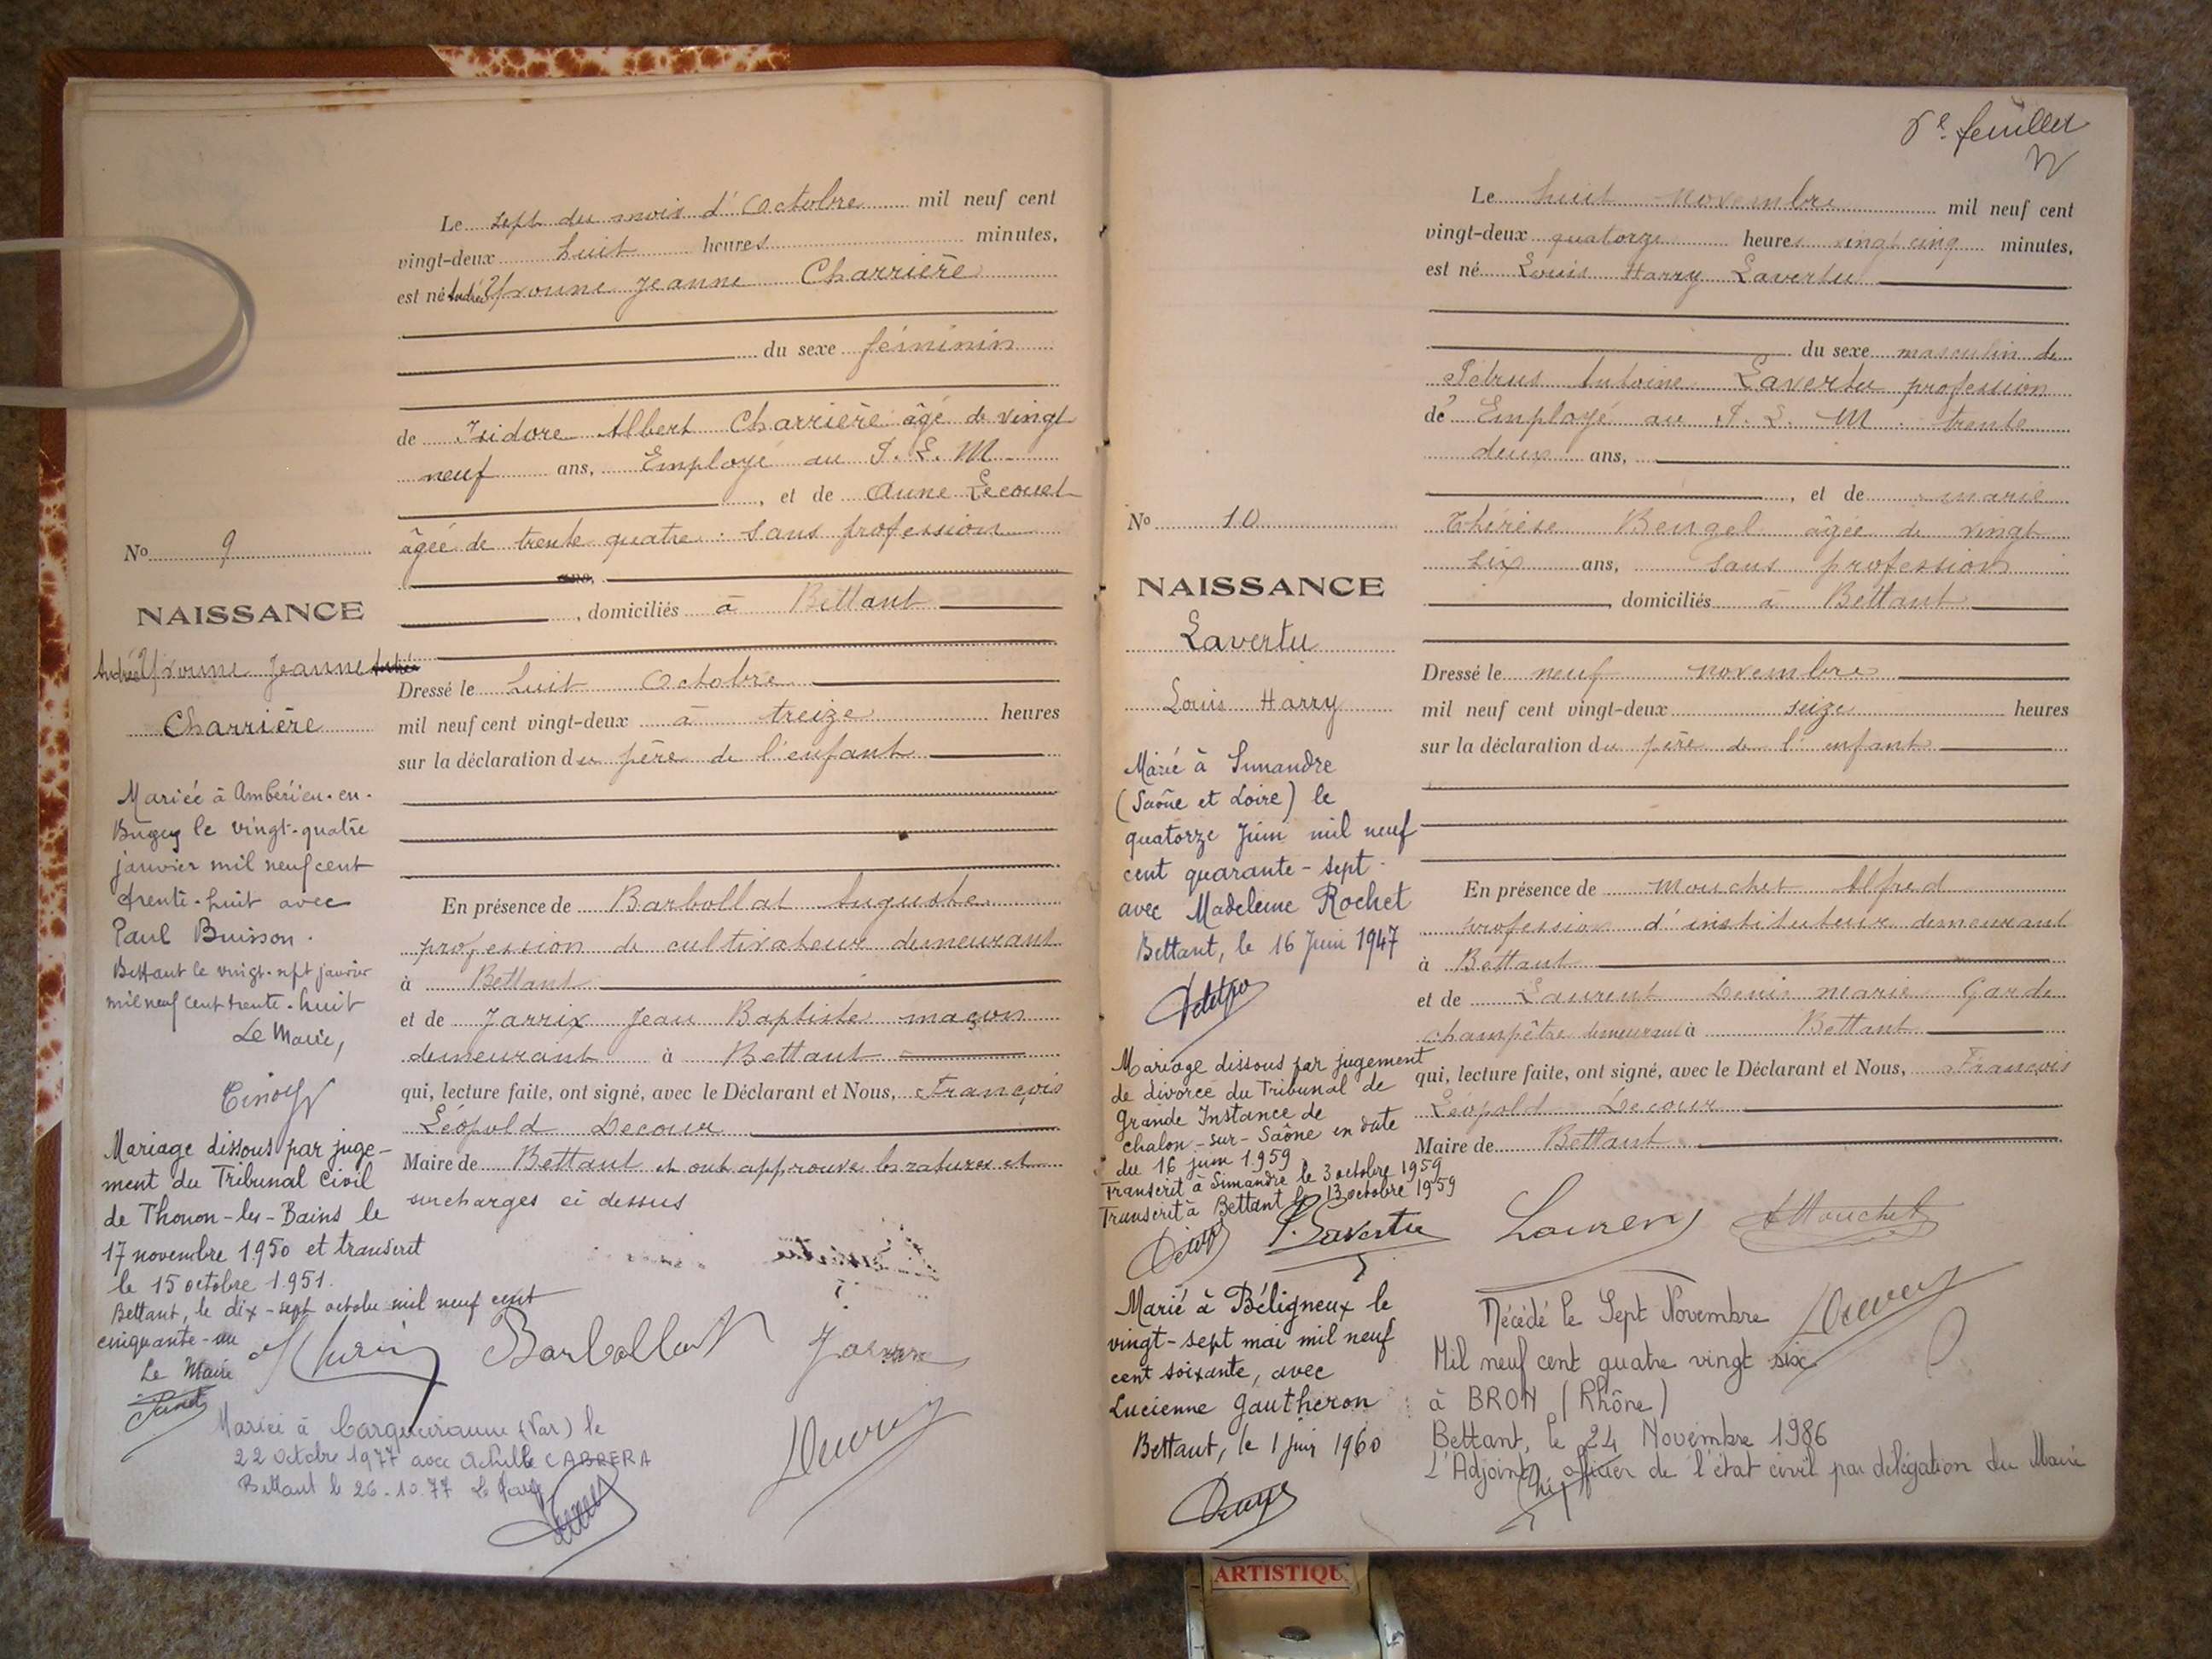 Le sept du mois d'Octobre mil neuf cent
vingt-deux huit heures minutes,
est né Andrée Yvonne Jeanne Charrière
du sexe féminin
de Isidore Albert Charrière âgé de vingt
neuf ans, Employé au P. L. M
, et de Anne Lecouet
âgée de trente quatre . sans profession
ans,
, domiciliés à Bettant
Dressé le huit Octobre
mil neuf cent vingt-deux à treize heures
sur la déclaration du père de l'enfant
En présence de Barbollat Auguste
profession de cultivateur demeurant
à Bettant
et de Jarrix Jean Baptiste maçon
demeurant à Bettant
qui, lecture faite, ont signé, avec le Déclarant et Nous, François
Léopold Decour
Maire de Bettant et ont approuvé les ratures et
surcharges ci dessus
Barbollat
No 9
NAISSANCE
Andrée Yvonne Jeanne
Charrière
Mariée à Ambérieu-en-
Bugey le vingt-quatre
janvier mil neuf cent
trente-huit avec
Paul Buisson.
Bettant le vingt-sept janvier
mil neuf cent trente-huit
Le Maire,
Mariage dissous par juge-
ment du Tribunal Civil
de Thonon-les-Bains le
17 novembre 1950 et transcrit
le 15 octobre 1951.
Bettant, le dix-sept octobre mil neuf cent
cinquante-un
Le Maire
Mariée à Carqueiranne (Var) le
22 octobre 1977 avec Achille CABRERA
Bettant le 26.10.77 Le Maire
6e feuillet
Le huit novembre mil neuf cent
vingt-deux quatorze heures vingt cinq minutes,
est né Louis Harry Lavertu
du sexe masculin de
Pétrus Antoine Lavertu profession
de Employé au P. L. M. trente
deux ans,
, et de marie
Thérèse Bengel âgée de vingt
six ans, sans profession
, domiciliés à Bettant
Dressé le neuf novembre
mil neuf cent vingt-deux seize heures
sur la déclaration du père de l'enfant
En présence de Mouchet Alfred
profession d'instituteur demeurant
à Bettant
et de Laurent Denis marie Garde
champêtre demeurant à Bettant
qui, lecture faite, ont signé, avec le Déclarant et Nous, François
Léopold Decour
Maire de Bettant
P. Lavertu Laurent AMouchet
Décédé le Sept Novembre
Mil neuf cent quatre vingt six
à BRON (Rhône)
Bettant, le 24 Novembre 1986
L'Adjoint, officier de l'état civil par délégation du Maire
No 10
NAISSANCE
Lavertu
Louis Harry
Marié à Simandre
(Saône et Loire) le
quatorze Juin mil neuf
cent quarante-sept
avec Madeleine Rochet
Bettant, le 16 Juin 1947
Mariage dissous par jugement
de divorce du Tribunal de
Grande Instance de
Chalon-sur-Saône en date
du 16 juin 1959
Transcrit à Simandre le 3 octobre 1959
Transcrit à Bettant le 13 octobre 1959
Marié à Béligneux le
vingt-sept mai mil neuf
cent soixante, avec
Lucienne Gautheron
Bettant, le 1 juin 1960
ARTISTIQU